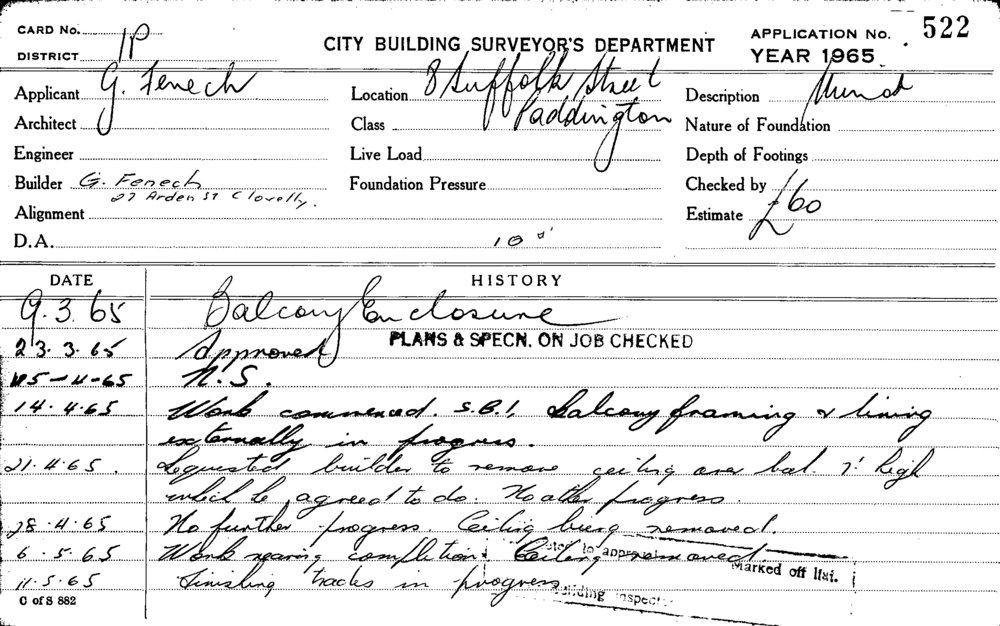 CARD No. APPLICATION No. 522
DISTRICT 1P CITY BUILDING SURVEYOR'S DEPARTMENT YEAR 1965
Applicant G. Fenech Location 8 Suffolk Street Description
Architect Class Paddington Nature of Foundation
Engineer Live Load Depth of Footings
Builder G. Fenech Foundation Pressure Checked by
27 Arden St Clovelly.
Alignment Estimate £60
D.A.
DATE HISTORY
9.3.65 Balcony Enclosure
PLANS & SPECN. ON JOB CHECKED
23.3.65 Approved
5-4-65 N.S.
14.4.65 Work commenced. S.B.1, balcony framing & lining
externally in progress.
21.4.65. Requested builder to remove ceiling over bal. 7' high
which he agreed to do. No other progress.
28.4.65 No further progress. Ceiling being removed.
6.5.65 Work nearing completion. Ceiling removed.
to approval
Marked off list.
11.5.65 Finishing trades in progress
Building Inspector
C of S 882